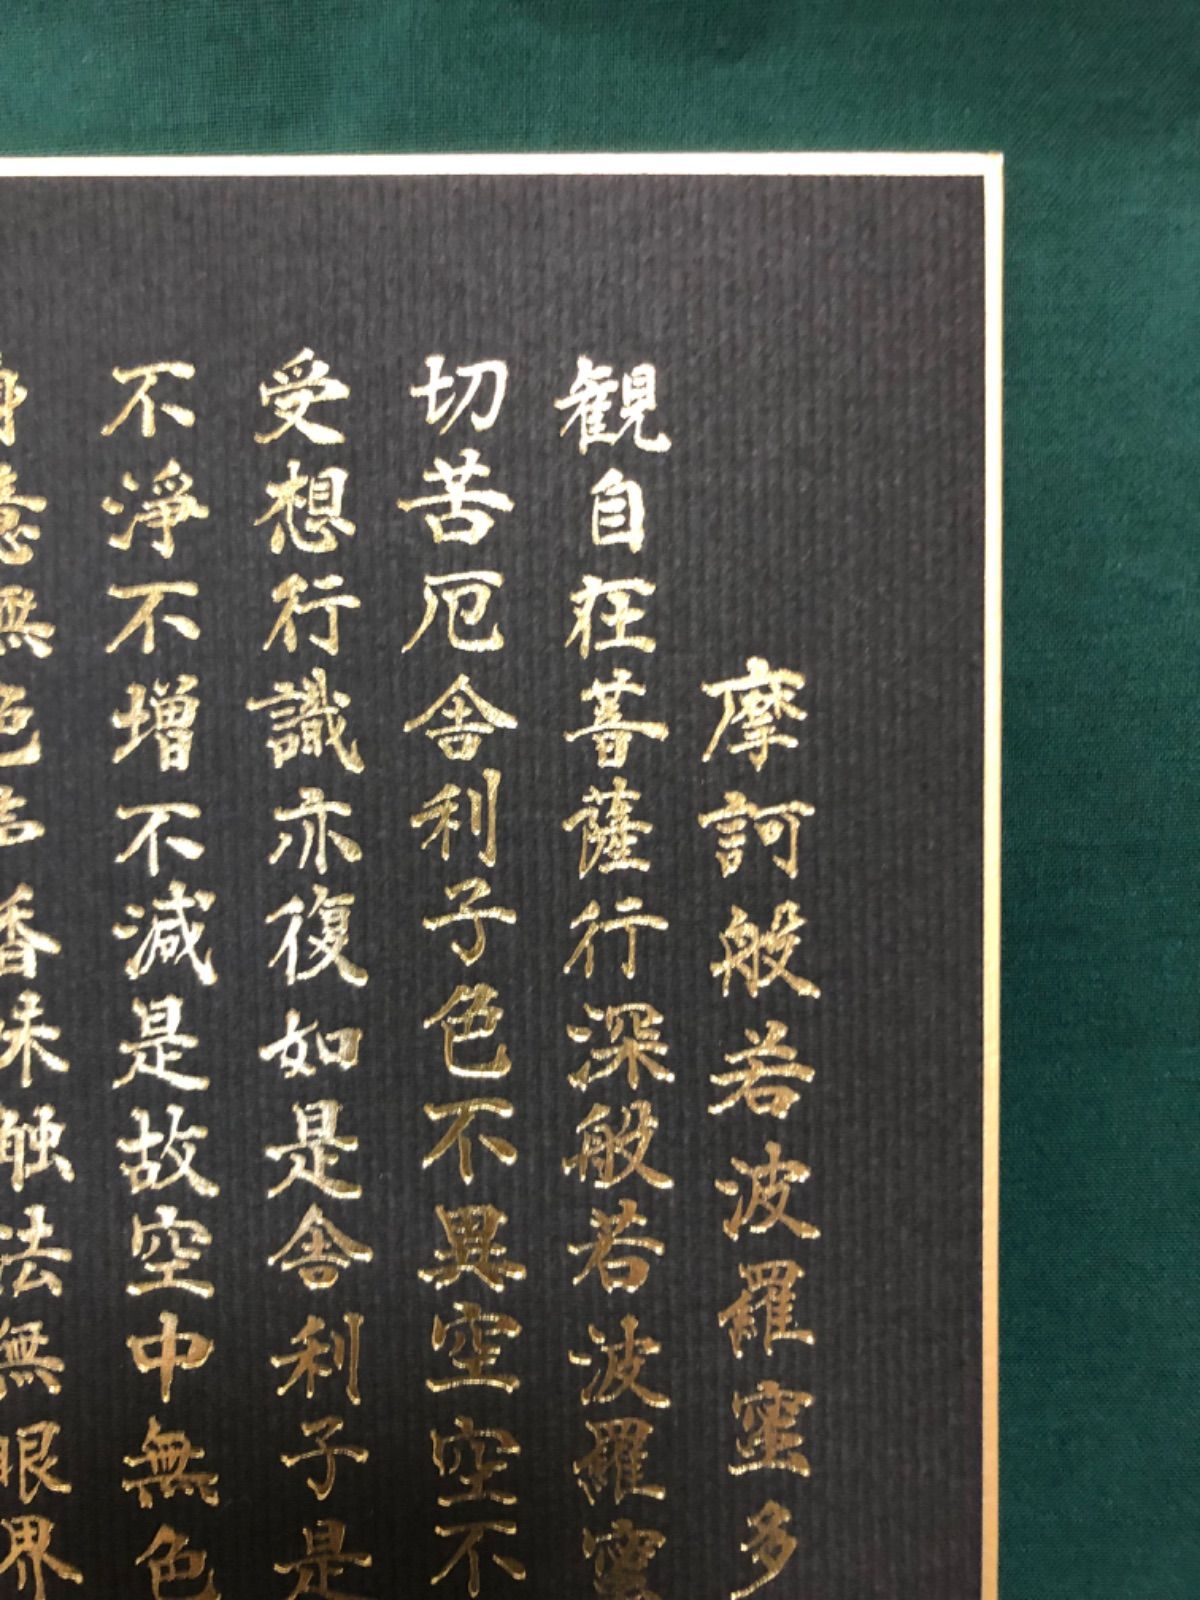 摩訶般若波羅蜜多
観自在菩薩行深般若波羅蜜
切苦厄舎利子色不異空空不
受想行識亦復如是舎利子是
不淨不増不減是故空中無色
身意無色声香味触法無眼界